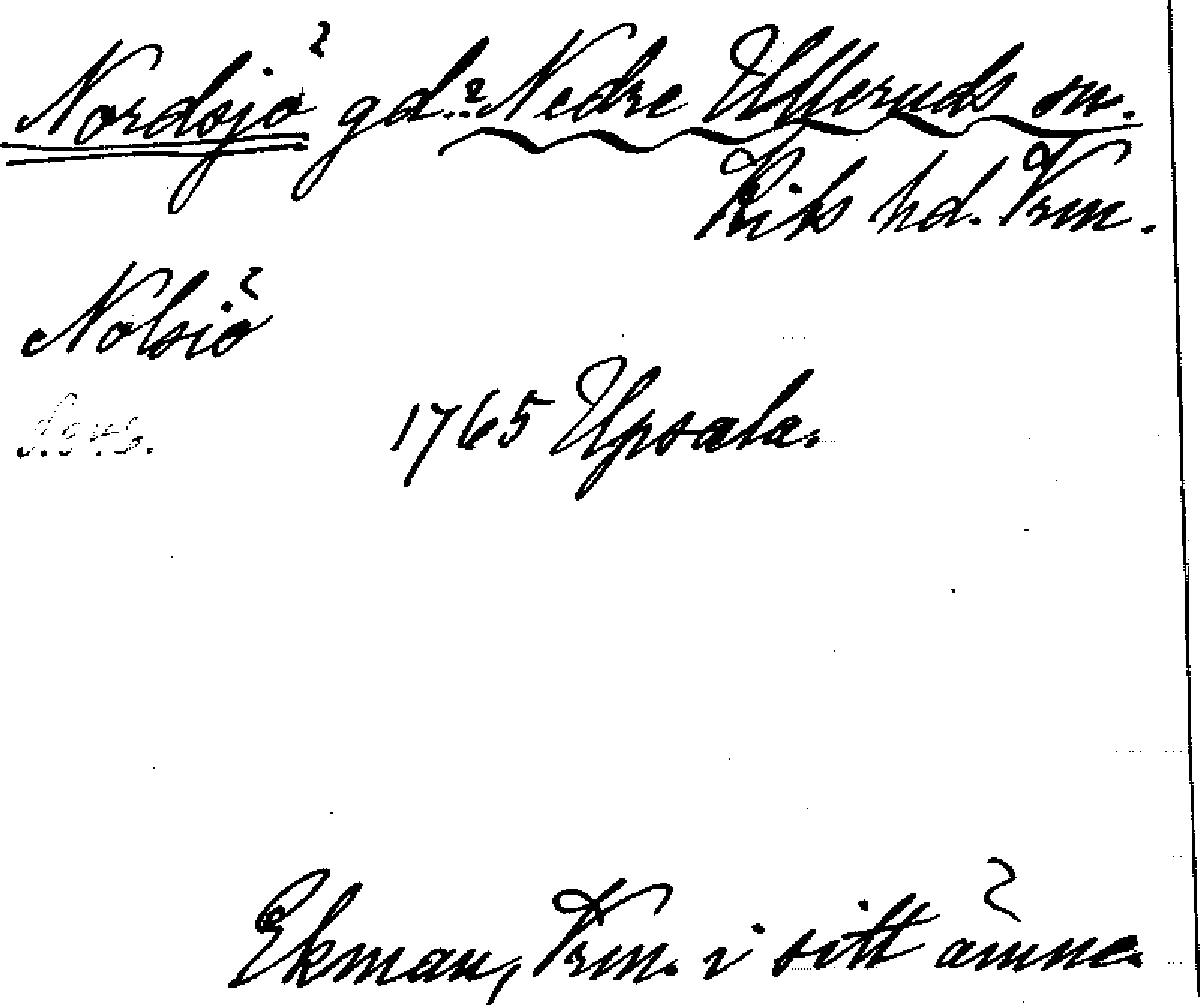 Nordsjö gd? Nedre Ulleruds sn.
Kils hd. Vrm.
Nolsiö
1765 Upsala.
Ekman, Vrm. i sitt ämne.